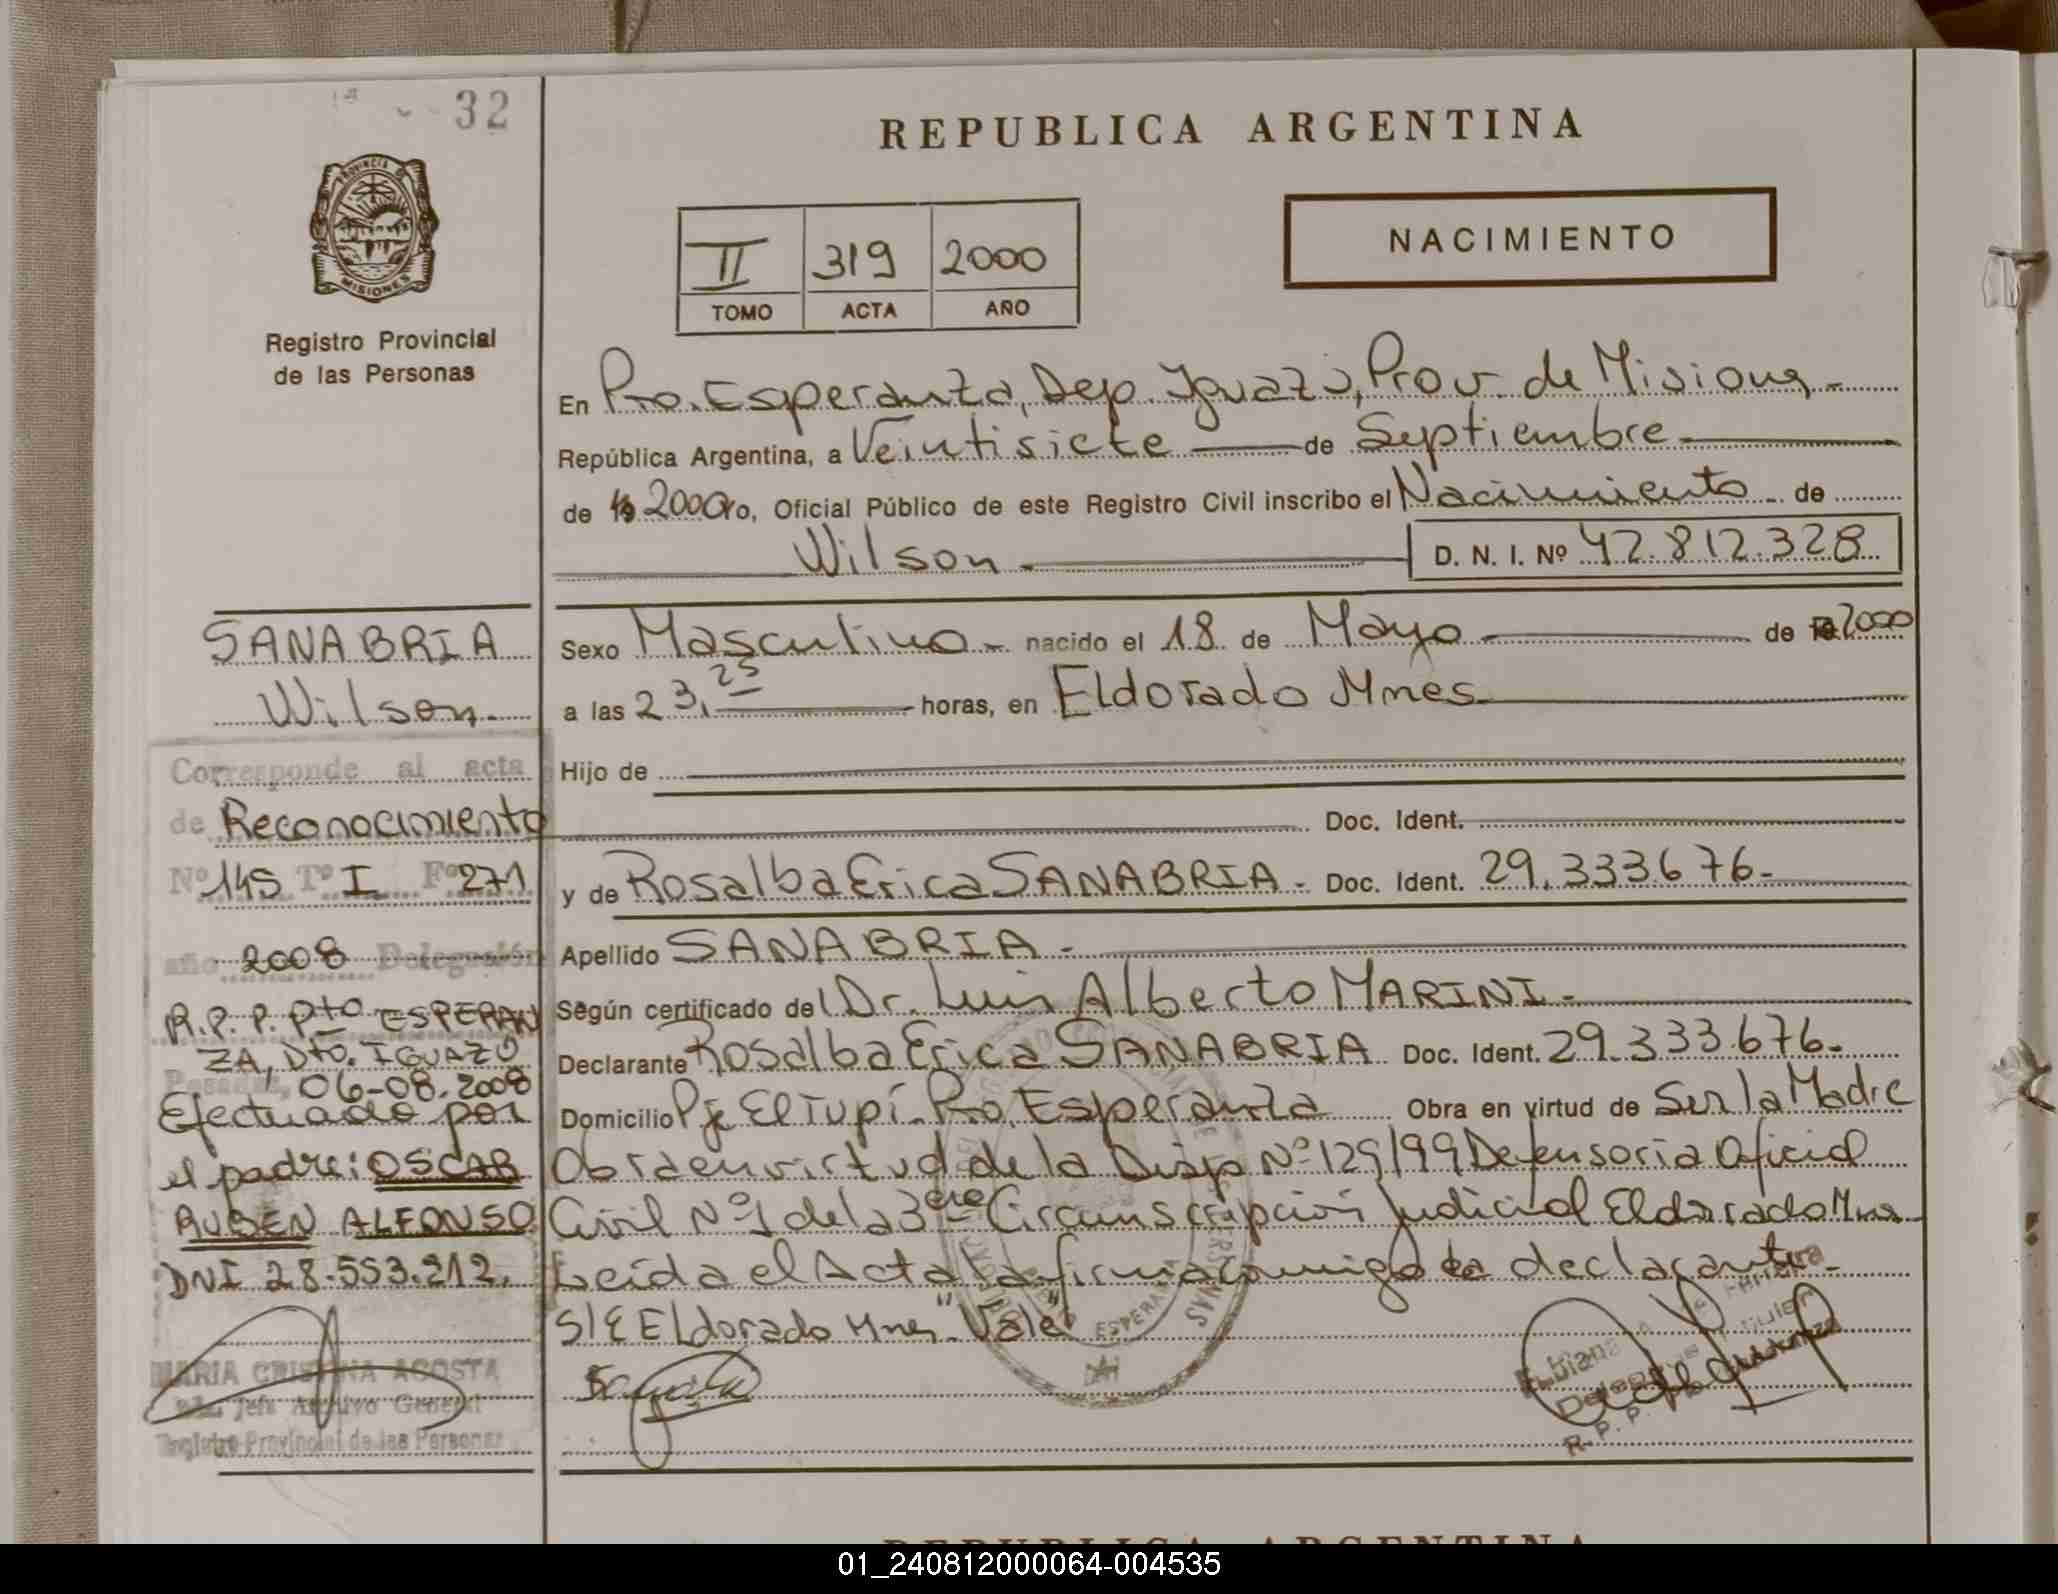 32
PROVINCIA D
MISIONES
Registro Provincial
de las Personas
REPUBLICA ARGENTINA
II 319 2000
TOMO ACTA AÑO
NACIMIENTO
En Pto. Esperanza, Dep. Iguazú, Prov. de Misiones
República Argentina, a Veintisiete de Septiembre
de 19 2000 Yo, Oficial Público de este Registro Civil inscribo el Nacimiento de
Wilson D. N. I. Nº 42.812.328
Sexo Masculino nacido el 18 de Mayo de 2000
a las 23,25 horas, en Eldorado Mnes
Hijo de
Doc. Ident.
y de Rosalba Erica SANABRIA Doc. Ident. 29.333.676
Apellido SANABRIA
Según certificado del Dr. Luis Alberto MARINI
Declarante Rosalba Erica SANABRIA Doc. Ident. 29.333.676
Domicilio Pje El Tupí Pto. Esperanza Obra en virtud de Ser la Madre
Obra en virtud de la Disp Nº 129/99 Defensoria Oficial
Civil Nº 1 de la 3era Circunscripción Judicial Eldorado Mnes
Leída el Acta la firma conmigo la declarante
S/E Eldorado Mnes "Vale"
ESPERANZA
SANABRIA
Wilson
Corresponde al acta
de Reconocimiento
Nº 145 Tº I Fº 271
año 2008 Delegación
R.P.P. Pto ESPERAN
ZA, Dto. IGUAZÚ
Posadas, 06-08-2008
Efectuado por
el padre: OSCAR
RUBEN ALFONSO
DNI 28.553.212
MARIA CRISTINA ACOSTA
Jefe Archivo General
Registro Provincial de las Personas
REPUBLICA ARGENTINA
01_240812000064-004535